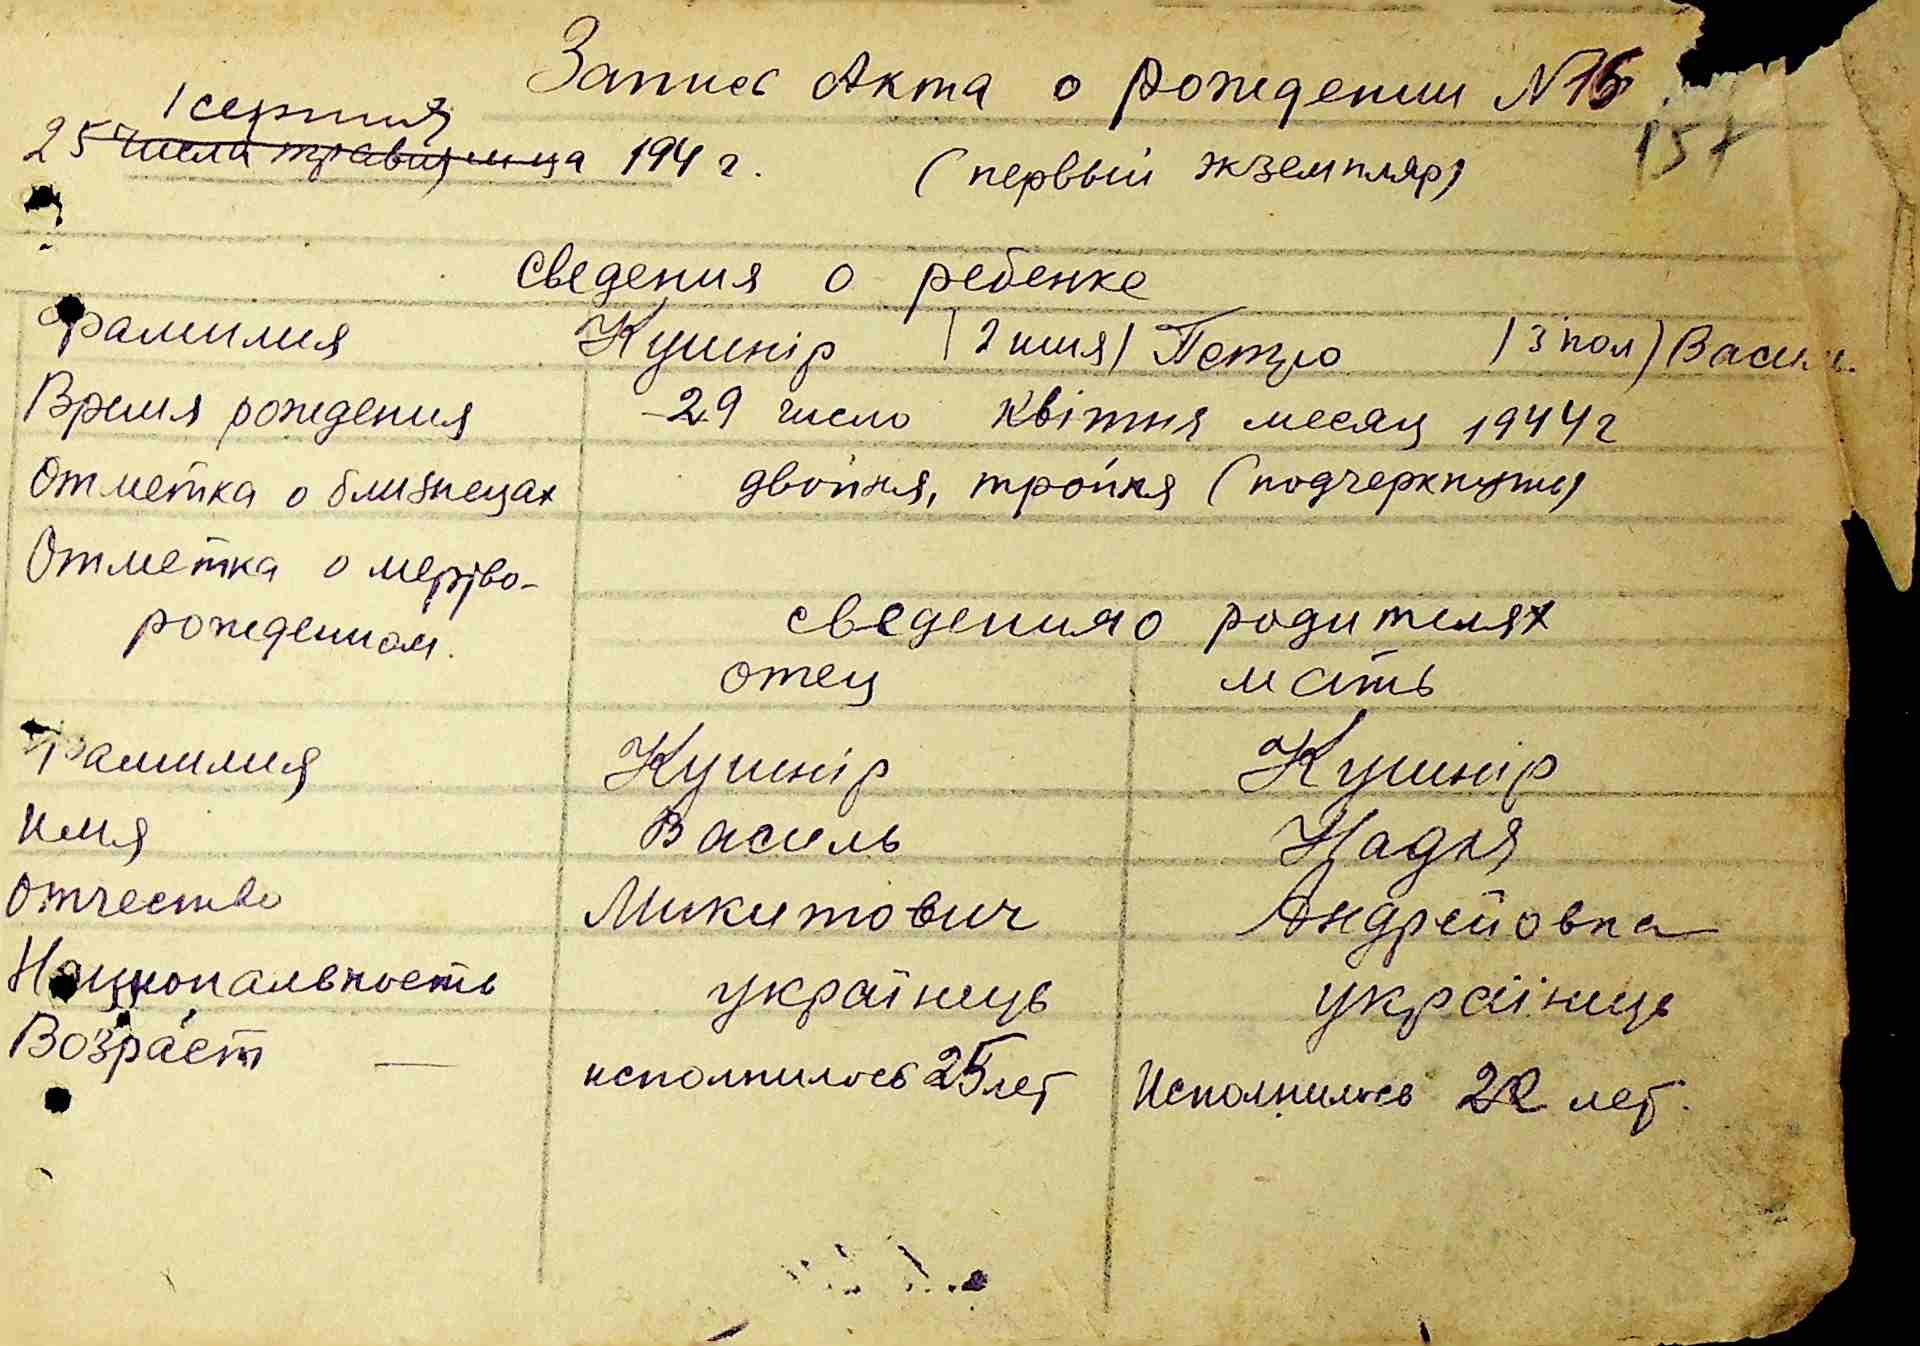 Запись Акта о рождении N 16
157
1 серпня
25 числа травня м-ца 194 г.
(первый экземпляр)
сведения о ребенке
Фамилия Кушнір | 2 имя) Петро | 3 пол) Васил.
Время рождения 29 число квітня месяц 1944 г
Отметка о близнецах двойня, тройня (подчеркнуть)
Отметка о мертво-
рожденном.
сведения о родителях
отец мать
Фамилия Кушнір Кушнір
имя Василь Надія
отчество Микитович Андрейовна
Национальность українець українець
Возраст — исполнилось 25 лет Исполнилось 22 лет.